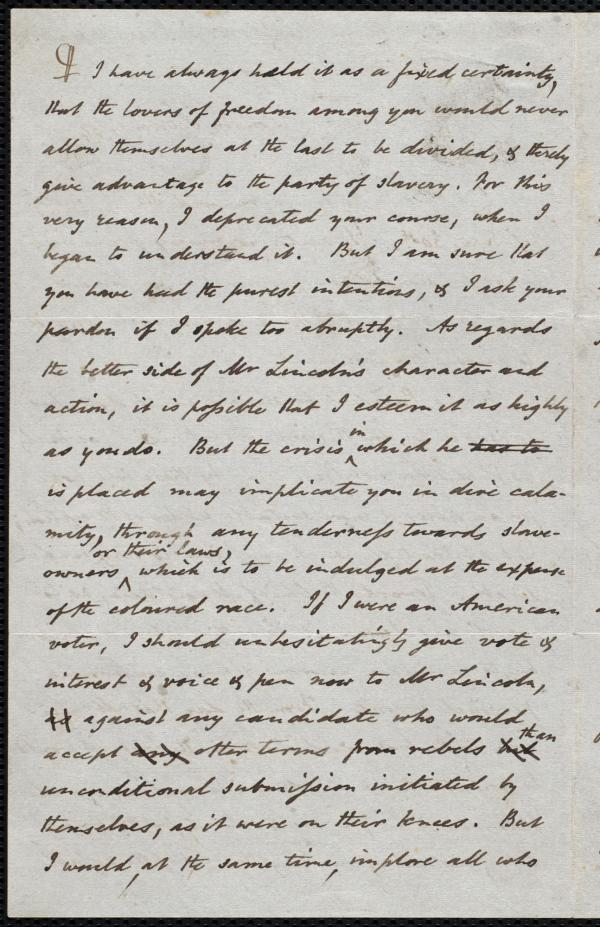 ¶ I have always held it as a fixed certainty,
that the lovers of freedom among you would never
allow themselves at the last to be divided, & thereby
give advantage to the party of slavery. For this
very reason, I deprecated your course, when I
began to understand it. But I am sure that
you have had the purest intentions, & I ask your
pardon if I spoke too abruptly. As regards
the better side of Mr Lincoln's character and
action, it is possible that I esteem it as highly
as you do. But the crisis in which he has to
is placed may implicate you in dire cala-
mity, through any tenderness towards slave-
owners or their laws, which is to be indulged at the expense
of the coloured race. If I were an American
voter, I should unhesitatingly give vote &
interest & voice & pen now to Mr Lincoln,
against any candidate who would
accept any other terms from rebels but than
unconditional submission initiated by
themselves, as it were on their knees. But
I would, at the same time, implore all who